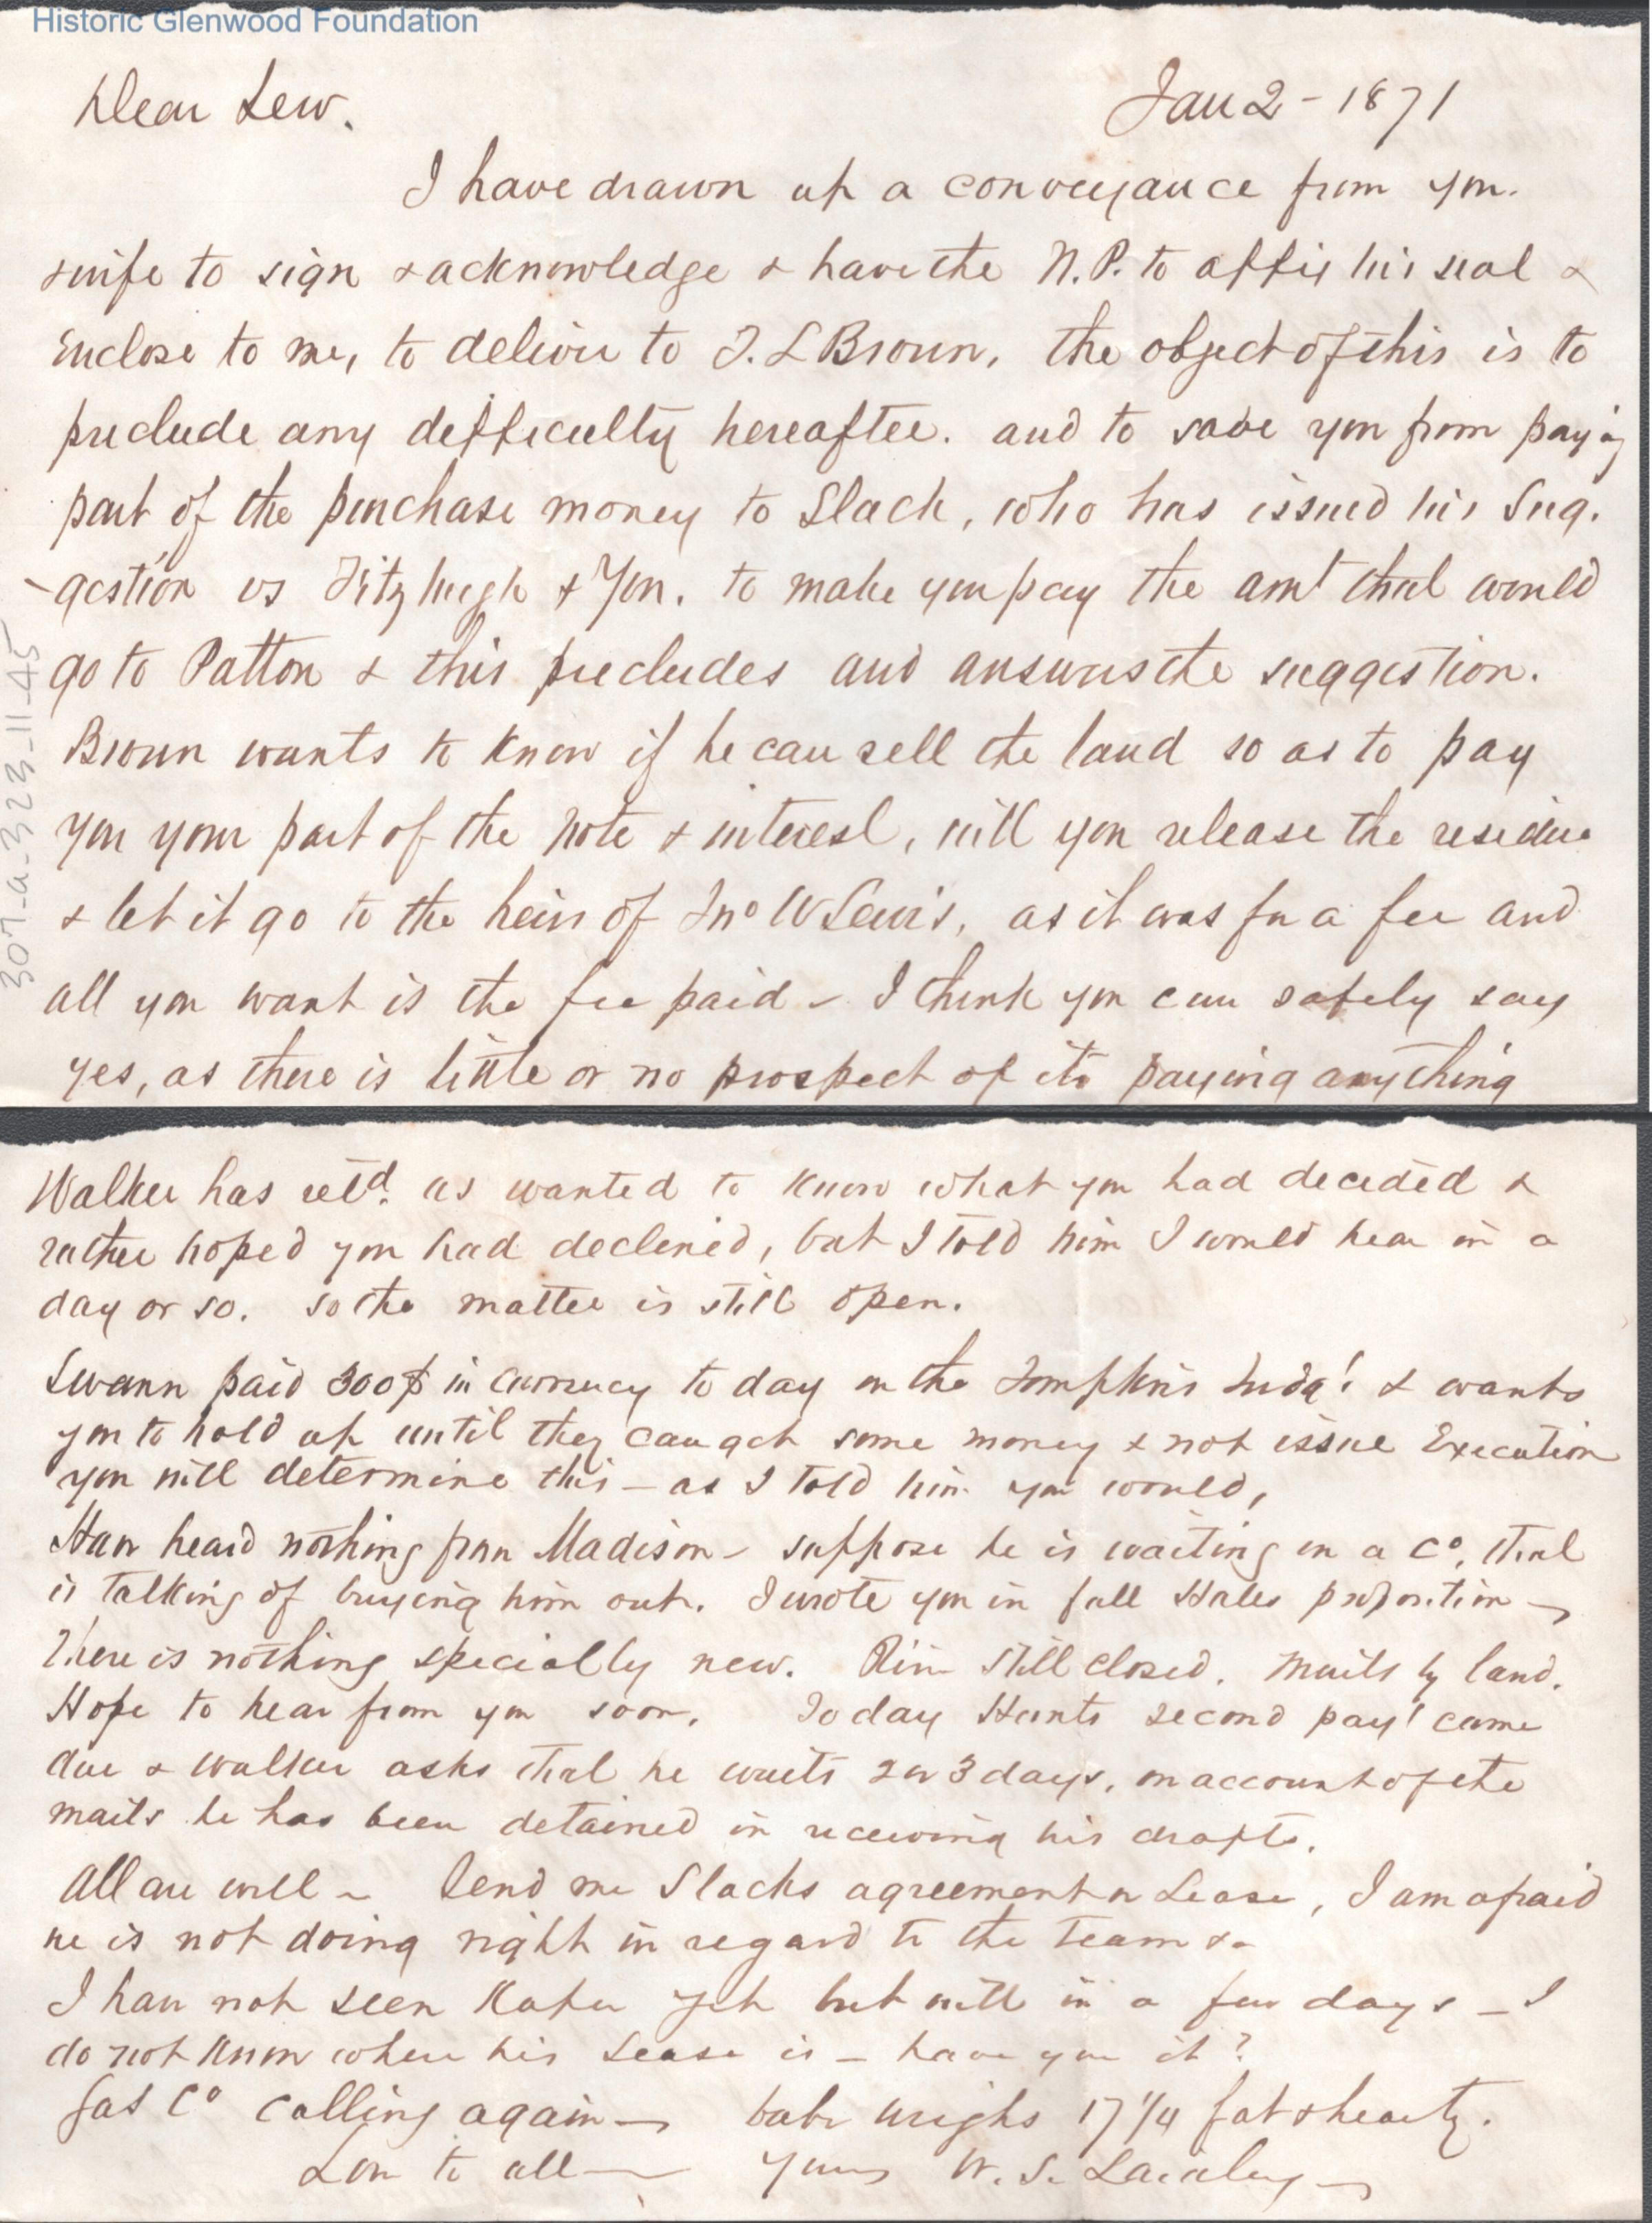 Historic Glenwood Foundation
Dear Lew. Jan 2 - 1871
I have drawn up a conveyance from you.
& wife to sign & acknowledge & have the N.P. to affix his seal &
enclose to me, to deliver to J. L Broun, the object of this is to
preclude any difficulty hereafter. and to save you from paying
part of the purchase money to Slack, who has issued his Sug.
-gestion vs Fitzhugh & You. to make you pay the amt that would
go to Patton & this precludes and answers the suggestion.
Broun wants to know if he can sell the land so as to pay
you your part of the note & interest, will you release the residue
& let it go to the heirs of Jno W Lewis, as it was for a fee and
all you want is the fee paid - I think you can safely say
yes, as there is little or no prospect of its paying anything
307-a-323-11-45
Walker has retd. as wanted to know what you had decided &
rather hoped you had declined, but I told him I would hear in a
day or so. so the matter is still open.
Swann paid 300$ in currency to day on the Tompkins Judgt & wants
you to hold up until they can get some money & not issue Execution
you will determine this - as I told him you would,
Have heard nothing from Madison - suppose he is waiting on a Co. that
is talking of buying him out. I wrote you in full Hales proposition -
There is nothing specially new. River still closed. mails by land.
Hope to hear from you soon. To day Hunts second payt came
due & Walker asks that he waits 2 or 3 days, on account of the
mails he has been detained in receiving his drafts.
All are well - Send me Slacks agreement or Lease, I am afraid
he is not doing right in regard to the team &-
I have not seen yet but will in a few days - I
do not know where his Lease is - have you it?
Gas Co calling again - babe weighs 17 1/4 fat & hearty.
Love to all - Yours W. S. Laidley -